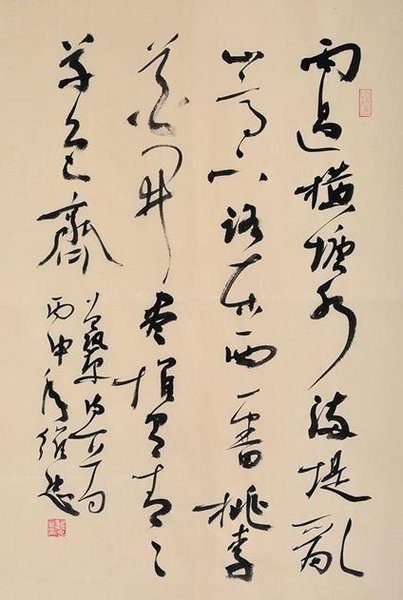 雨過橫塘水滿堤亂
山高下路東西一番桃李
花開盡惟有青々
草色齊
曾鞏
丙申